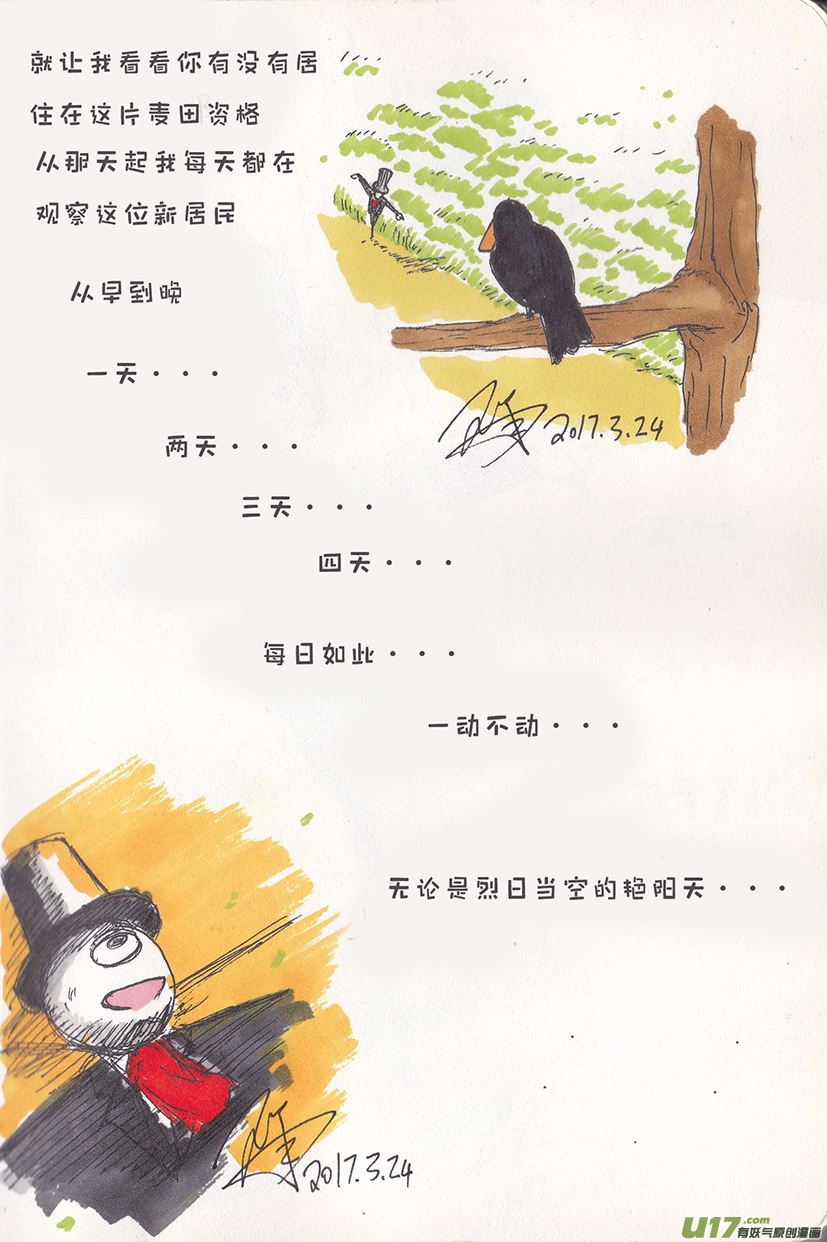 就让我看看你有没有居
住在这片麦田资格
从那天起我每天都在
观察这位新居民
从早到晚
一天···
两天···
三天···
四天···
每日如此···
一动不动···
无论是烈日当空的艳阳天···
2017.3.24
2017.3.24
U17.com
有妖气原创漫画